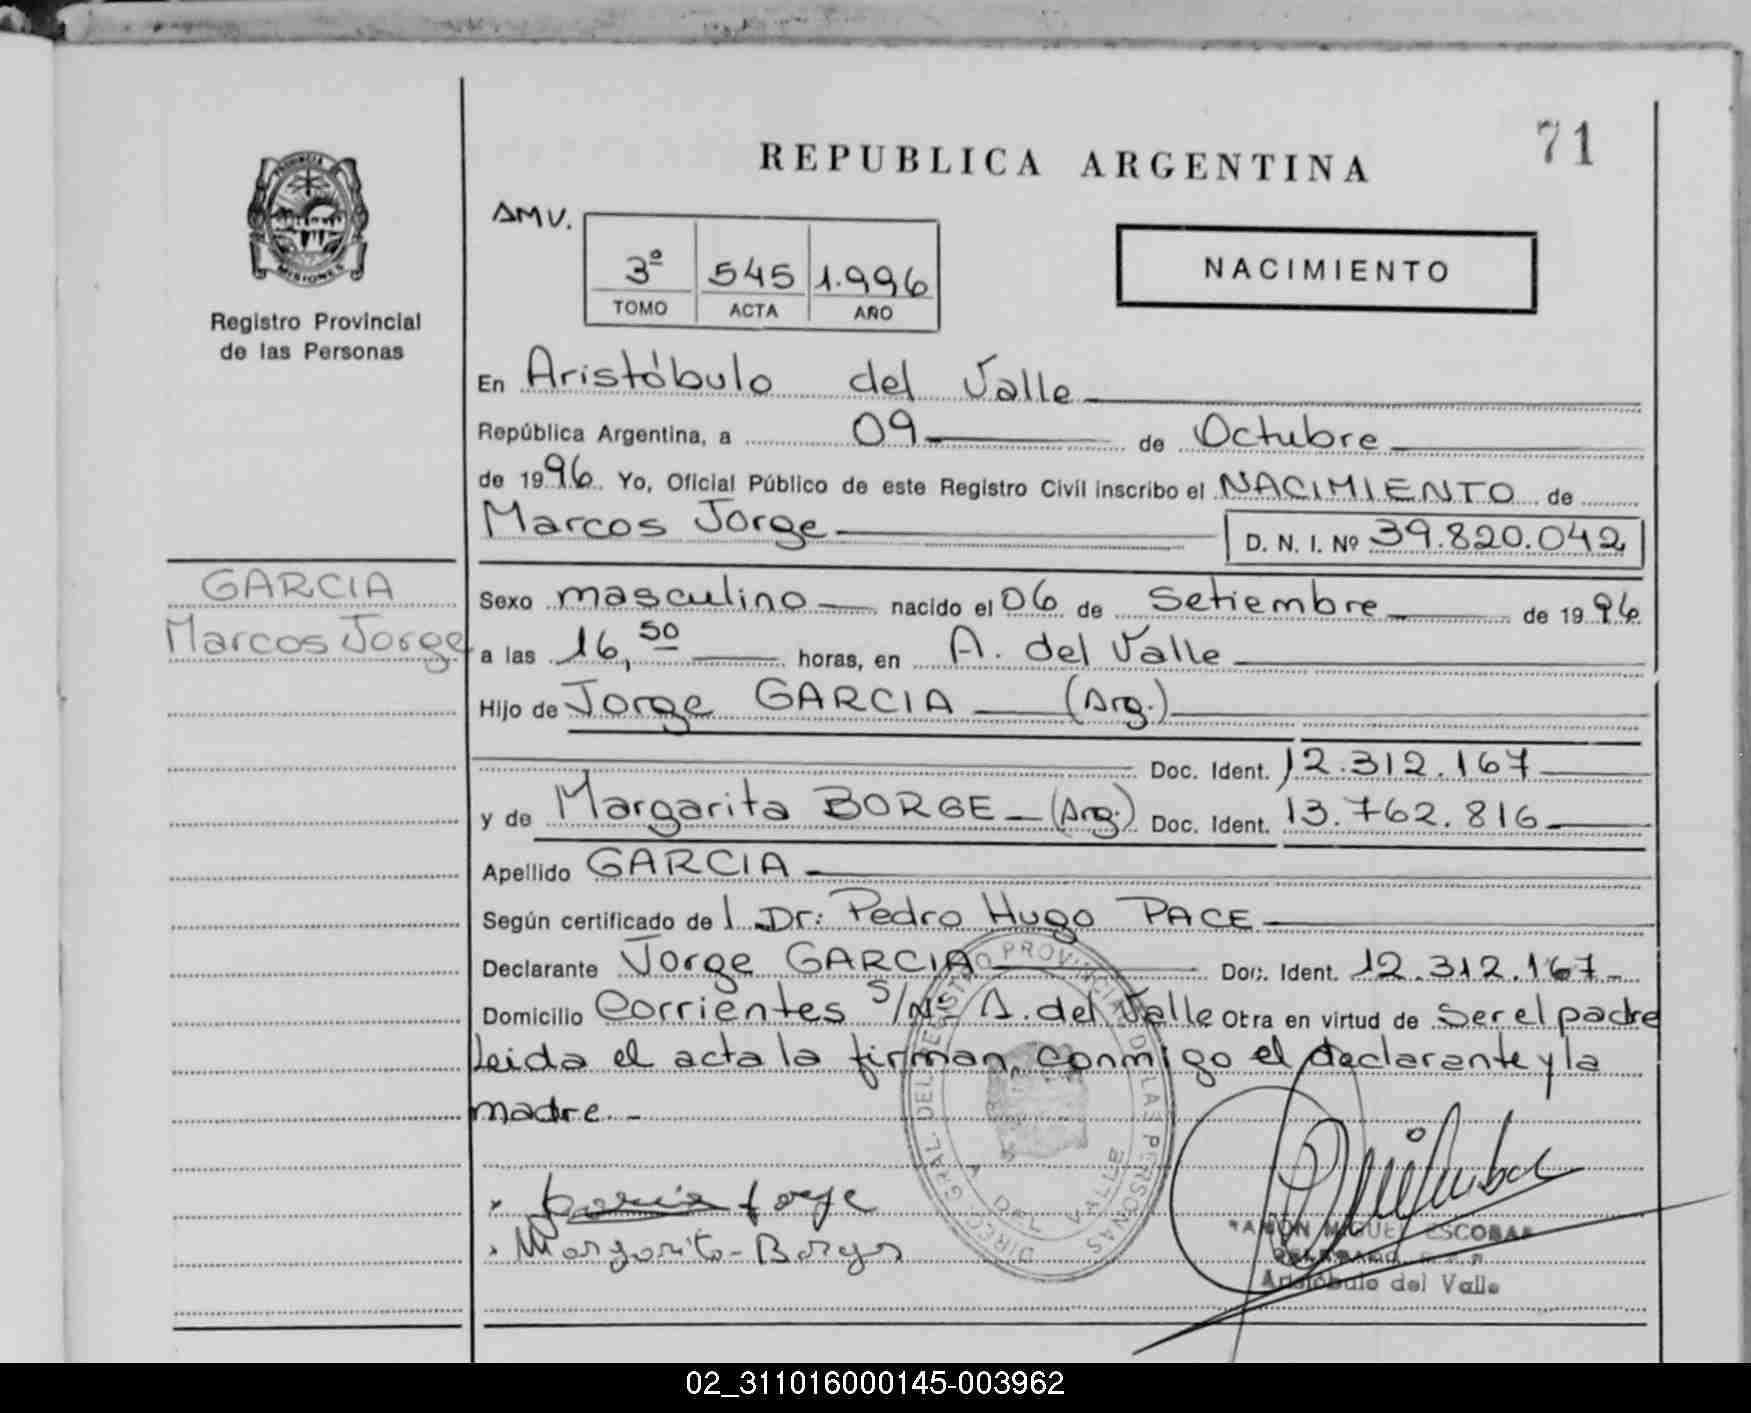 71
REPUBLICA ARGENTINA
PROVINCIA
MISIONES
Registro Provincial
de las Personas
AMV.
3º 545 1.996
TOMO ACTA AÑO
NACIMIENTO
En Aristóbulo del Valle
República Argentina, a 09 de Octubre
de 1996. Yo, Oficial Público de este Registro Civil inscribo el NACIMIENTO de
Marcos Jorge D. N. I. Nº 39.820.042
GARCIA
Marcos Jorge
Sexo masculino nacido el 06 de Setiembre de 1996
a las 16,50 horas, en A. del Valle
Hijo de Jorge GARCIA (Arg.)
Doc. Ident. 12.312.167
y de Margarita BORGE (Arg.) Doc. Ident. 13.762.816
Apellido GARCIA
Según certificado de l Dr: Pedro Hugo PACE
Declarante Jorge GARCIA Doc. Ident. 12.312.167
Domicilio Corrientes s/Nº A. del Valle Otra en virtud de ser el padre
Leida el acta la firman, conmigo el declarante y la
madre.-
DIREC. GRAL. DEL REGISTRO PROVINCIAL DE LAS PERSONAS
A. DEL VALLE
Garcia Jorge
Margarita-Borge
RAMON MIGUEL ESCOBAR
Aristóbulo del Valle
02_311016000145-003962